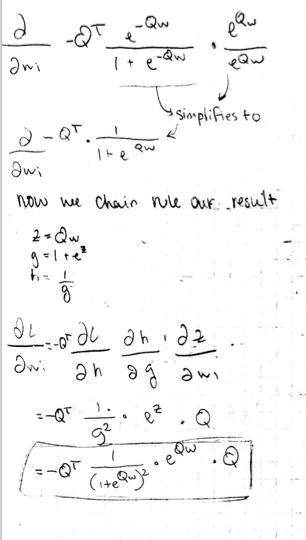 ∂/∂wi -Q^T e^-Qw / 1 + e^-Qw · e^Qw / e^Qw
simplifies to
∂/∂wi -Q^T · 1 / 1+e^Qw
now we chain rule our result
z = Qw
g = 1+e^z
h = 1/g
∂L/∂wi = -Q^T ∂L/∂h ∂h/∂g · ∂z/∂wi
= -Q^T 1/g² · e^z · Q
= -Q^T 1/(1+e^Qw)² · e^Qw · Q